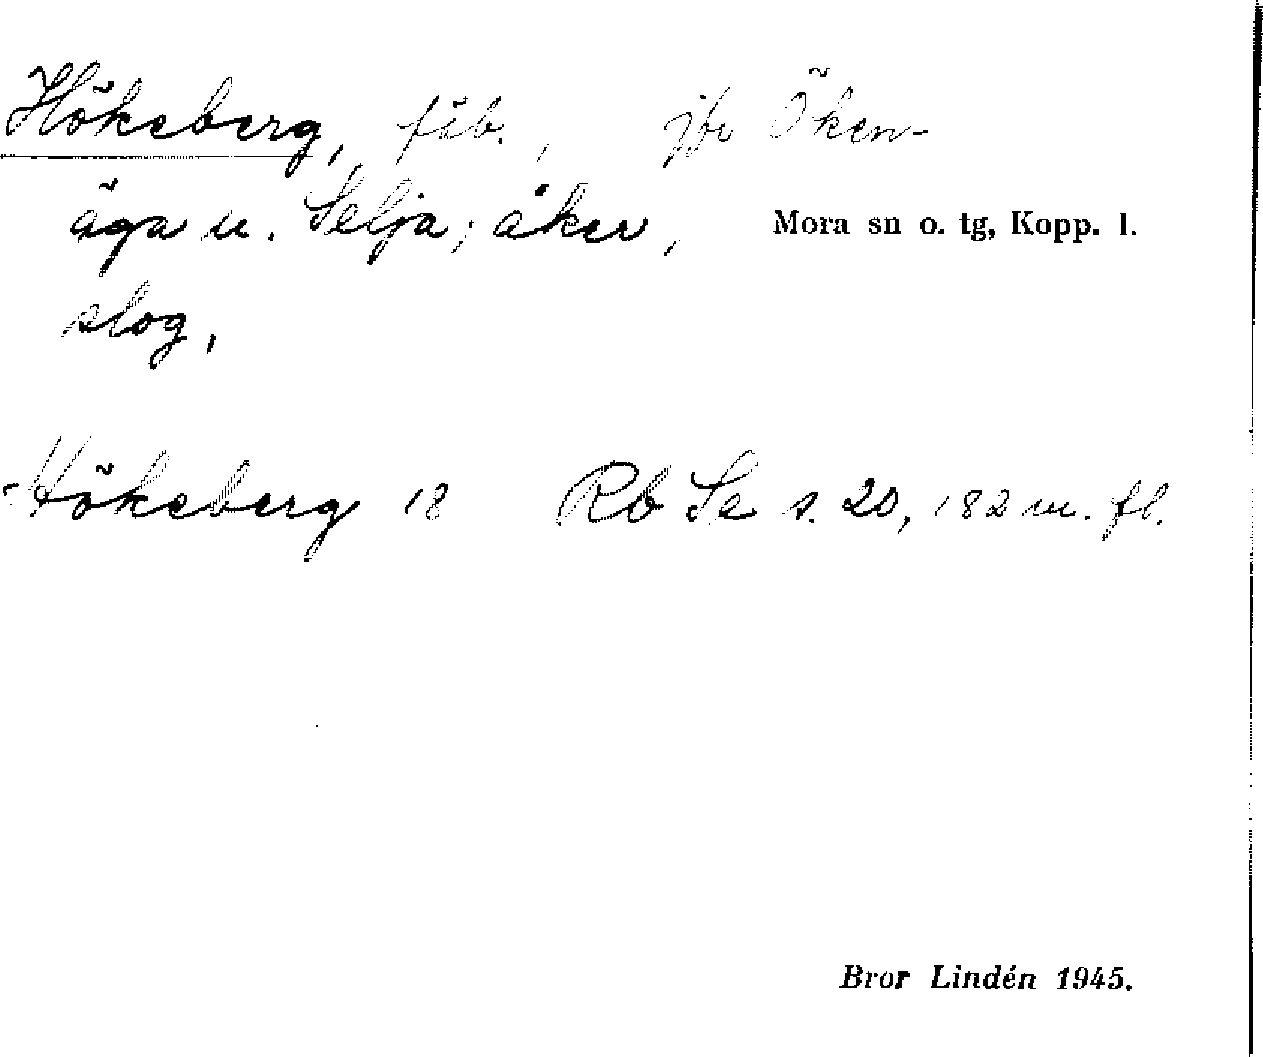 Hökeberg, fäb., jfr Öken-
äga u. Selja; åker,
Mora sn o. tg, Kopp. l.
slog,
Hökeberg 18 Rb Se s. 20, 182 m. fl.
Bror Lindén 1945.